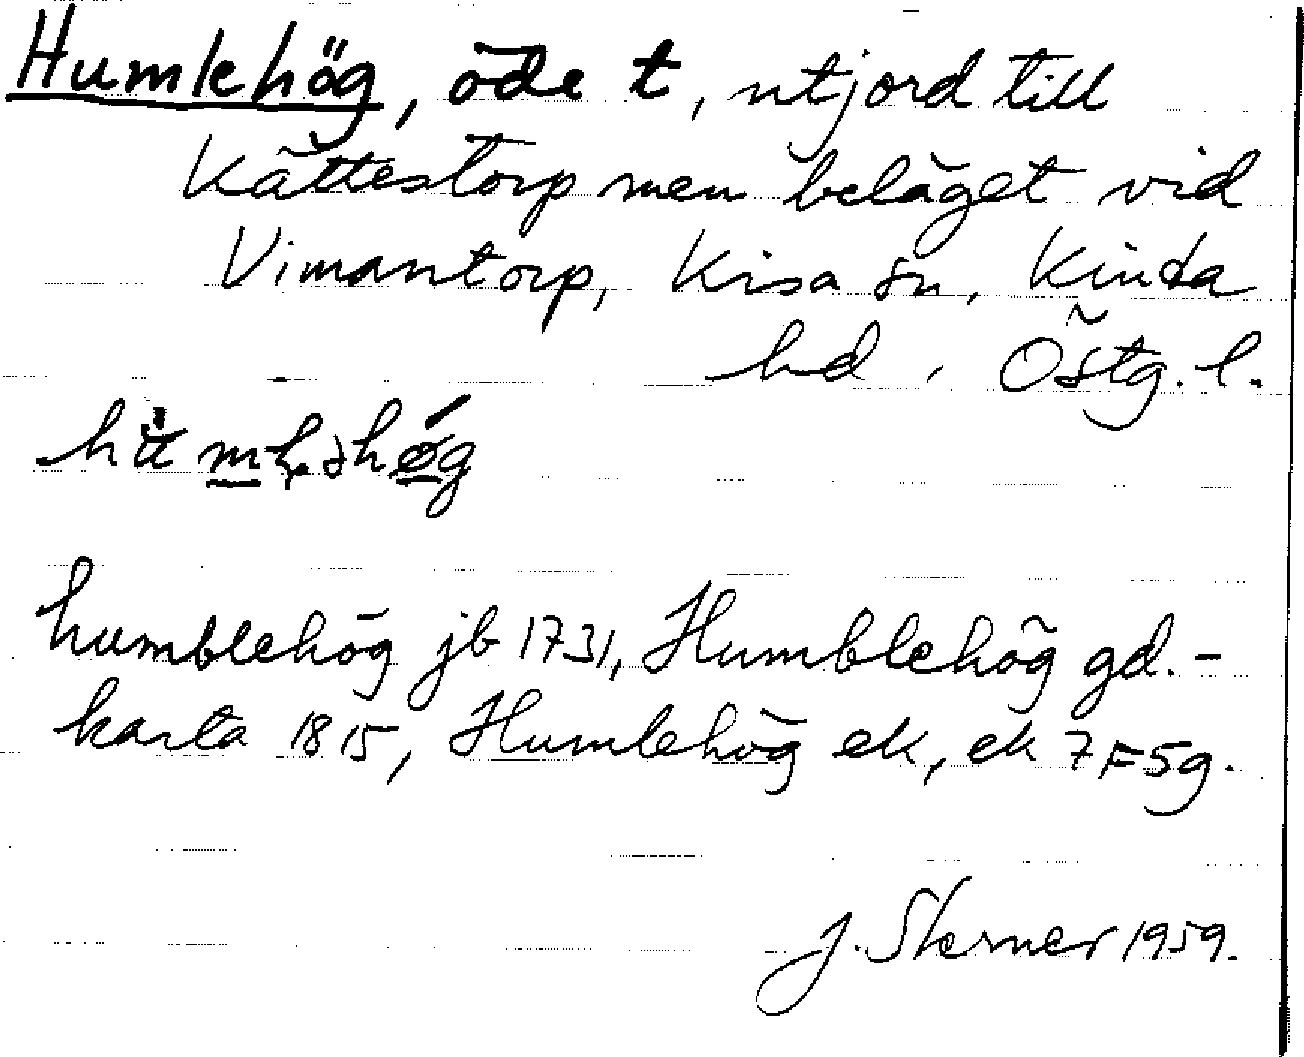 Humlehög, öde t, utjord till
Kättestorp men beläget vid
Vimantorp, Kisa sn, Kinda
hd, Östg. l.
humblehög jb 1731, Humblehög gd.-
karta 1815, Humlehög ek, ek 7F5g.
J. Sterner 1959.